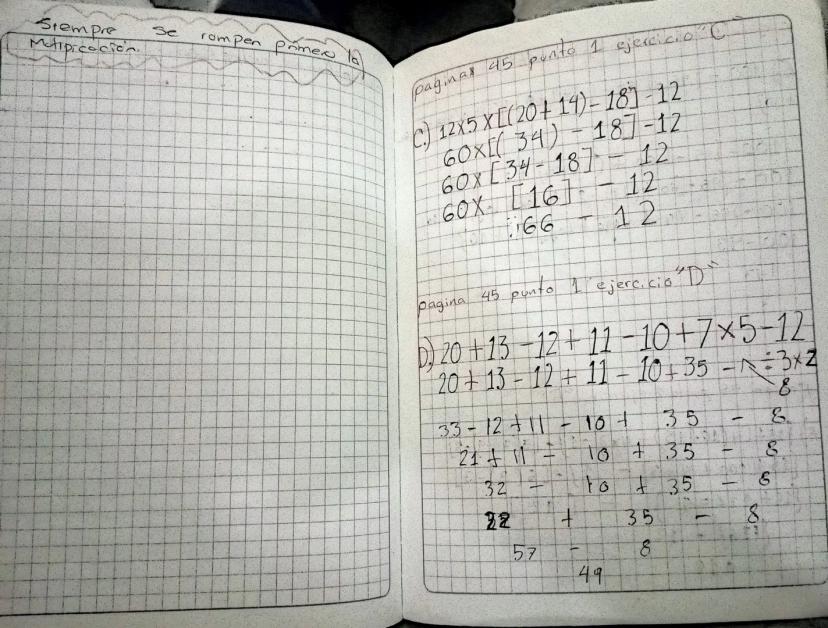 Siempre se rompen primero la
Multipicación.
paginas 45 punto 1 ejercicio "C"
C.) 12x5x[(20+14)-18]-12
60x[(34)-18]-12
60x[34-18]-12
60x[16]-12
66-12
pagina 45 punto 1 ejercicio "D"
D.) 20+13-12+11-10+7x5-12
20+13-12+11-10+35-12÷3x2
8
33-12+11-10+35-8
21+11-10+35-8
32-10+35-8
22+35-8
57-8
49